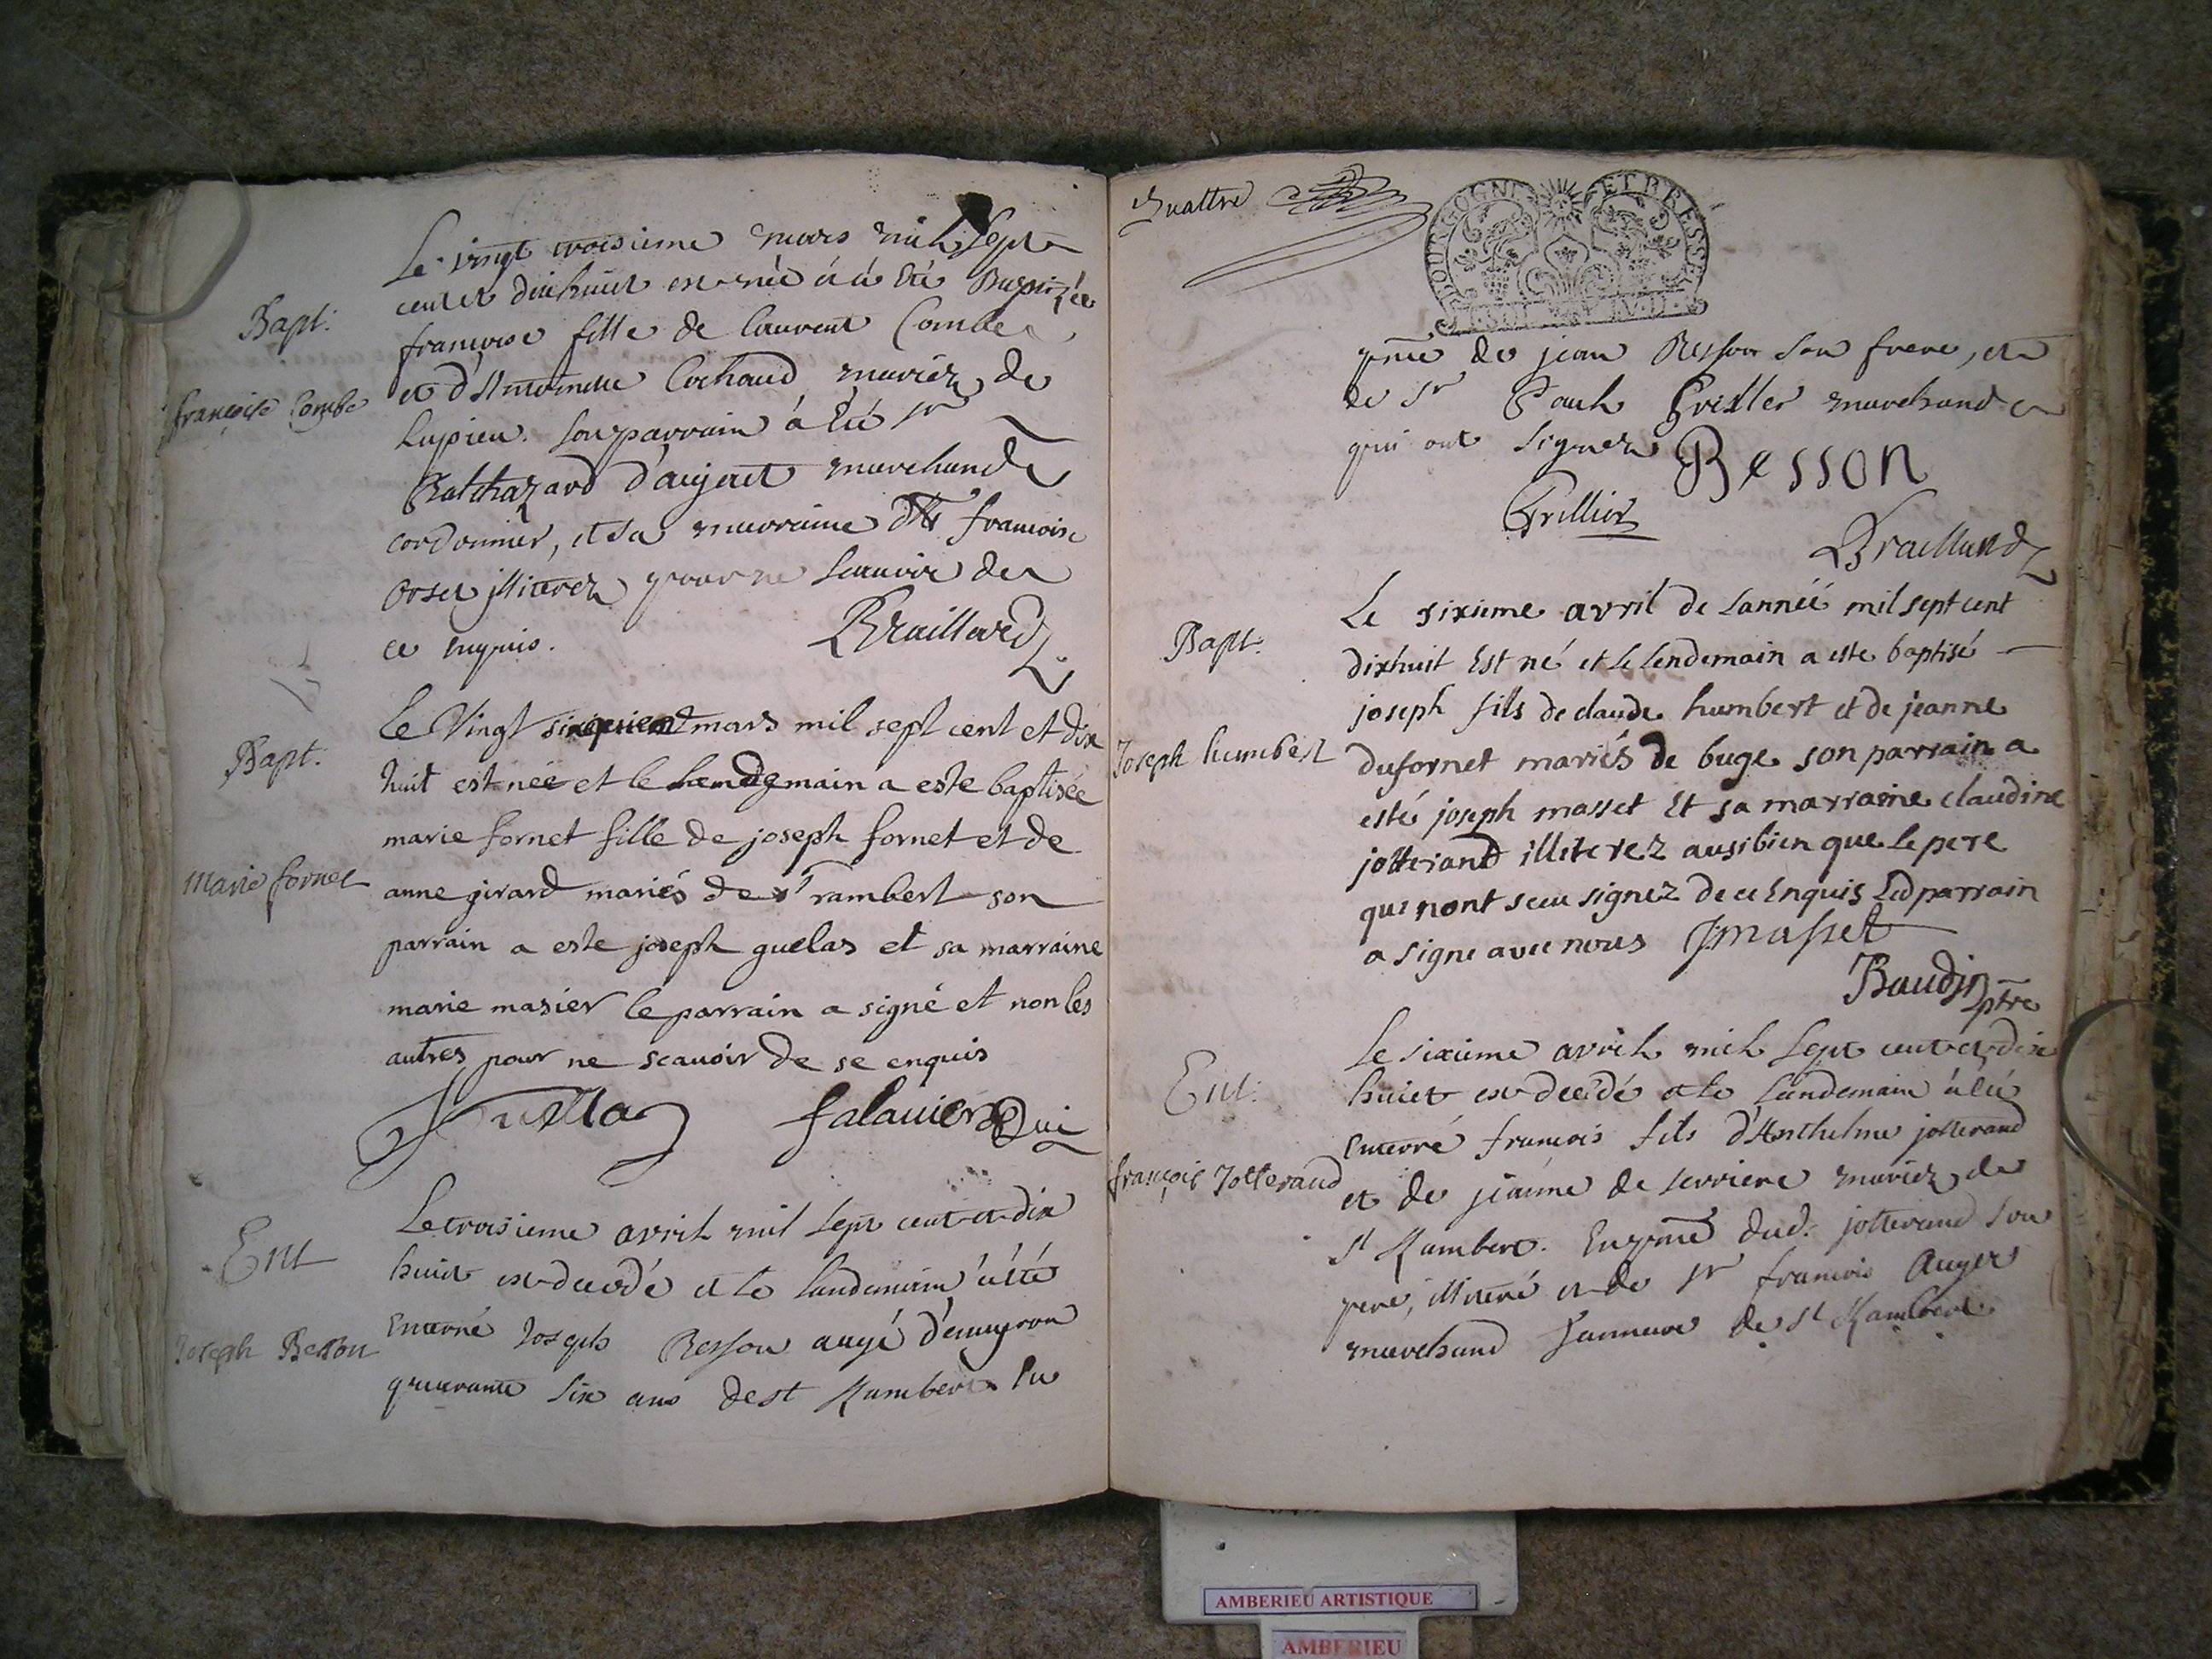 Le vingt troisieme mars mil sept
cent et dixhuict est née et a été Baptizée
Bapt:
francoise fille de laurent Combe
et d'Antoinette Cochaud mariez de
françoise Combe
Lupieu. son parrain á été sr
Balthazard d'augeret marchand
cordonnier, et sa marraine dlle francoise
orset jlliterez pour ne scauoir de
ce enquis. Braillard
Le Vingt mars mil sept cent et dix
Bapt.
huit est née et le lendemain a este baptisée
marie fornet fille de joseph fornet et de
Marie fornet
anne girard mariés de st rambert son
parrain a este joseph guelas et sa marraine
marie masier le parrain a signé et non les
autres pour ne scauoir de se enquis
falauier
Le troisieme avril mil sept cent et dix
Ent
huict est decedé et le landemain a été
enterré Joseph Besson augé d'enuyron
Joseph Besson
quarante six ans de st Rambert en
Quattre
BOURGOGNE ET BRESSE
pnce de jean Besson son frere, et
de sr Paul Grillier marchand
qui ont signez Besson
Grillier
Braillard
Le sixieme avril de lannéé mil sept cent
Bapt:
dixhuit Est né et le lendemain a este baptisé
joseph fils de claude humbert et de jeanne
Joseph humbert
dufornet mariés de buge son parrain a
esté joseph masset Et sa marraine claudine
jotterand illiterez ausi bien que le pere
qui nont sceu signez de ce Enquis Led parrain
a signe avec nous J masset
Baudin ptre
Le sixieme avril mil sept cent et dix
Ent:
huict est decedé et le landemain a été
enterré francois fils d'Anthelme jotterand
françois Jotterand
et de jeanne de serriere mariez de
st Rambert. En pnce dud. jotterand son
pere, illiteré et de sr francois Auger
marchand tanneur de st Rambert.
AMBERIEU ARTISTIQUE
AMBERIEU